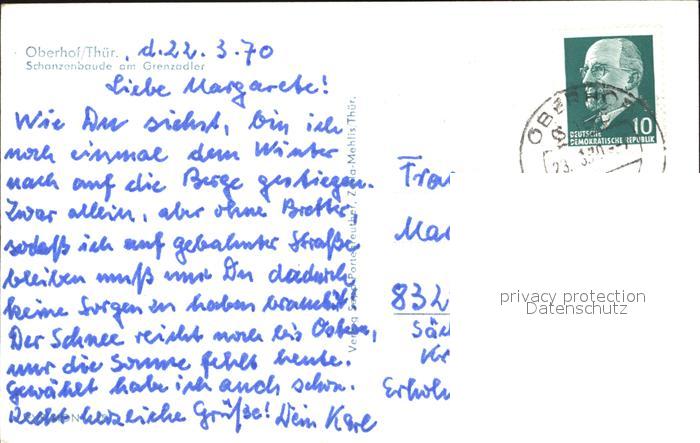 Oberhof/Thür. , d. 22. 3. 70
Schanzenbaude am Grenzadler
Liebe Margarete!
Wie Du siehst, bin ich
noch einmal dem Winter
nach auf die Berge gestiegen.
Zwar allein, aber ohne Bretter
sodaß ich auf gebahnter Straße
bleiben muß und Du dadurch
keine Sorgen zu haben brauchst.
Der Schnee reicht noch bis Ostern,
nur die Sonne fehlt heute.
Gewählt habe ich auch schon.
Recht herzliche Grüße! Dein Karl
Verlag Zella-Mehlis/Thür.
DEUTSCHE 10
DEMOKRATISCHE REPUBLIK
OBERHOF
23.
Frau
832
Säc
Kr
Erhol
privacy protection
Datenschutz